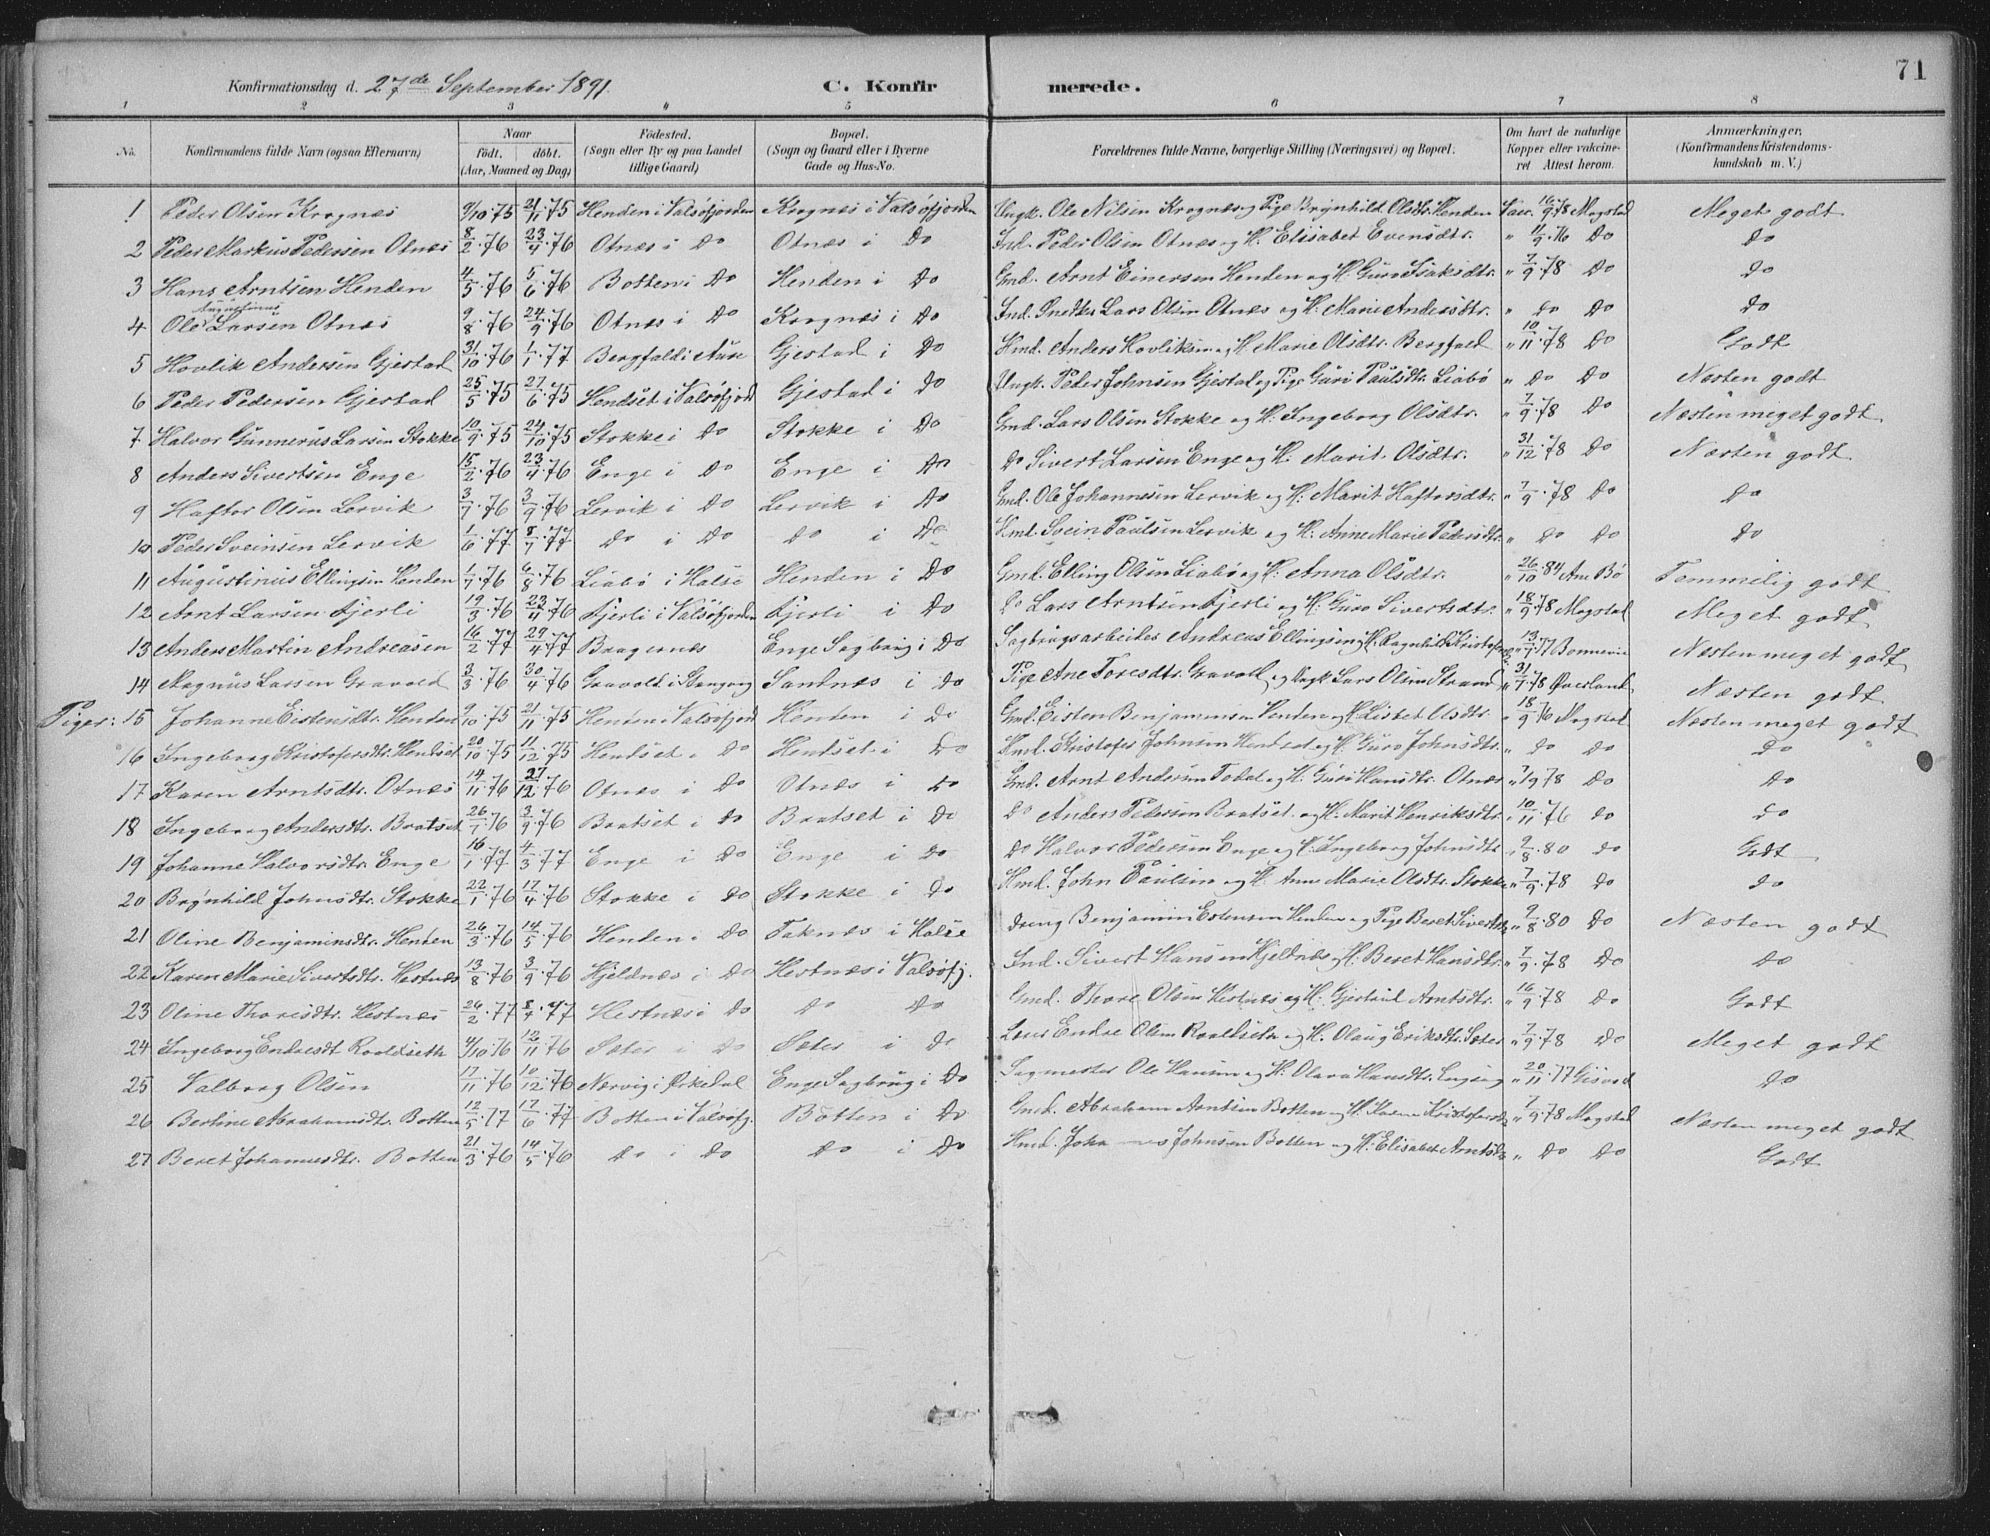 71
Konfirmationsdag d. 27de September 1891. C. Konfirmerede.
1 2 3 4 5 6 7 8
No. Konfirmandens fulde Navn (ogsaa Efternavn) Naar födt. döbt. (Aar, Maaned og Dag) Födested. (Sogn eller By og paa Landet tillige Gaard) Bopæl. (Sogn og Gaard eller i Byerne Gade og Hus-No. Forældrenes fulde Navne, borgerlige Stilling (Næringsvei) og Bopæl. Om havt de naturlige Kopper eller vakcineret Attest herom. Anmærkninger. (Konfirmandens Kristendomskundskab m. V.)
1 Peder Olsen Krognæs 9/10.75 21/11.75 Henden i Valsøfjorden Krognæs i Valsøfjorden Ungk. Ole Nilsen Krognæs og Pige Brynhild Olsdtr. Henden Vacc. 16/9.78 Mogstad Meget godt
2 Peder Markus Pedersen Otnæs 8/2.76 23/4.76 Otnæs i Do Otnæs i Do Ind. Peder Olsen Otnæs og H. Elisabet Evensdtr. " 11/9.76 Do Do
3 Hans Arntsen Henden 4/5.76 5/6.76 Botten i Do Henden i Do Gmd. Arnt Einersen Henden og H. Guro Isaksdtr. " 7/9.78 Do Do
4 Ole Augustinus Larsen Otnæs 9/8.76 24/9.76 Otnæs i Do Krognæs i Do Ind. Snedker Lars Olsen Otnæs og H. Marie Andersdtr. " Do Do Do
5 Hovlik Andersen Gjestad 31/10.76 1/1.77 Bergfald i Aure Gjestad i Do Hmd. Anders Hovliksen og H. Marie Olsdtr. Bergfald " 10/11.78 Do Godt
6 Peder Pedersen Gjestad 25/5.75 27/6.75 Hendset i Valsøfjord Gjestad i Do Ungk. Peder Johnsen Gjestad og Pige Guri Paulsdtr. Liabø " Do Do Næsten godt
7 Halvor Gunnerus Larsen Stokke 10/9.75 24/10.75 Stokke i Do Stokke i Do Gmd. Lars Olsen Stokke og H. Ingeborg Olsdtr. " 7/9.78 Do Næsten meget godt
8 Anders Sivertsen Enge 15/2.76 23/4.76 Enge i Do Enge i Do Do Sivert Larsen Enge og H. Marit Olsdtr. " 31/12.78 Do Næsten godt
9 Haftor Olsen Lervik 3/7.76 3/9.76 Lervik i Do Lervik i Do Gmd. Ole Johannesen Lervik og H. Marit Haftorsdtr. " 7/9.78 Do Do
10 Peder Sveinsen Lervik 1/6.77 8/7.77 Do i Do Do i Do Hmd. Svein Paulsen Lervik og H. Anne Marie Pedersdtr. " Do Do Do
11 Augustinus Ellingsen Henden 1/7.76 6/8.76 Liabø i Halse Henden i Do Gmd. Elling Olsen Liabø og H. Anna Olsdtr. " 26/10.84 Ane Bø Temmelig godt
12 Arnt Larsen Fjerli 19/3.76 23/4.76 Fjerli i Valsøfjorden Fjerli i Do Do Lars Arntsen Fjerli og H. Guro Sivertsdtr. " 18/9.78 Mogstad Meget godt
13 Anders Martin Andreasen 16/2.77 29/4.77 Bragernæs Enge Sagbrug i Do Sagbrugsarbeider Andreas Ellingsen og H. Ragnhild Kristofersdtr. " 13/7.77 Bonnevie Næsten meget godt
14 Magnus Larsen Gravold 3/3.76 30/4.76 Gravold i Stangvig Sandnæs i Do Pige Ane Toresdtr. Gravold og Ungk. Lars Olsen Strand " 31/7.78 Øverland Næsten godt
Piger: 15 Johanne Eistensdtr. Henden 9/10.75 21/11.75 Henden i Valsøfjord Henden i Do Gmd. Eisten Benjaminsen Henden og H. Lisbet Olsdtr. " 18/9.76 Mogstad Næsten meget godt
16 Ingeborg Kristofersdtr. Hendset 20/10.75 11/12.75 Hendset i Do Hendset i Do Hmd. Kristofer Johnsen Hendset og H. Guro Johnsdtr. " Do Do Do
17 Karen Arntsdtr. Otnæs 14/11.76 27/12.76 Otnæs i Do Otnæs i Do Gmd. Arnt Andersen Todal og H. Guri Hansdtr. Otnæs " 7/9 78 Do Do
18 Ingeborg Andersdtr. Bratset 26/7.76 3/9.76 Bratset i Do Bratset i Do Do Anders Pedersen Bratset og H. Marit Henriksdtr. " 10/11.76 Do Do
19 Johanne Halvorsdtr. Enge 16/1.77 4/3.77 Enge i Do Enge i Do Do Halvor Pedersen Enge og H. Ingeborg Johnsdtr. " 9/8.80 Do Godt
20 Brynhild Johnsdtr. Stokke 22/1.76 17/4.76 Stokke i Do Stokke i Do Hmd. John Paulsen og H. Anne Marie Olsdtr. Stokke " 7/9.78 Do Do
21 Oline Benjaminsdtr. Henden 26/3.76 14/5.76 Henden i Do Taknæs i Halse Dreng Benjamin Estensen Henden og Pige Beret Sivertsdtr. " 9/8.80 Do Næsten godt
22 Karen Marie Sivertsdtr. Hestnæs 13/8.76 3/9.76 Hjeldnæs i Do Hestnæs i Valsøfj. Ind. Sivert Hansen Hjeldnæs og H. Beret Hansdtr. " 7/9.78 Do Do
23 Oline Thoresdtr. Hestnæs 26/2.77 8/4.77 Hestnæs i Do Do Do Gmd. Thore Olsen Hestnæs og H. Gjertrud Arntsdtr. " 16/9.78 Do Godt
24 Ingeborg Endresdt. Roaldseth 4/10 76 12/11.76 Sæter i Do Sæter i Do Endre Olsen Roaldseth og H. Olaug Eriksdtr. Sæter " 7/9.78 Do Meget godt
25 Valborg Olsen 17/11.76 10/12.76 Nærvig i Ørkedal Enge Sagbrug i Do Sagmester Ole Hansen og H. Olava Hansdtr. " 20/11.77 Do
26 Bertine Abrahamsdtr. Botten 12/5.77 17/6.77 Botten i Valsøfj. Botten i Do Gmd. Abraham Arntsen Botten og H. Karen Kristofersdtr. " 7/9.78 Mogstad Næsten meget godt
27 Beret Johannesdtr. Botten 21/3.76 14/5.76 Do i Do Do i Do Hmd. Johannes Johnsen Botten og H. Elisabet Arntsdtr. " Do Do Godt